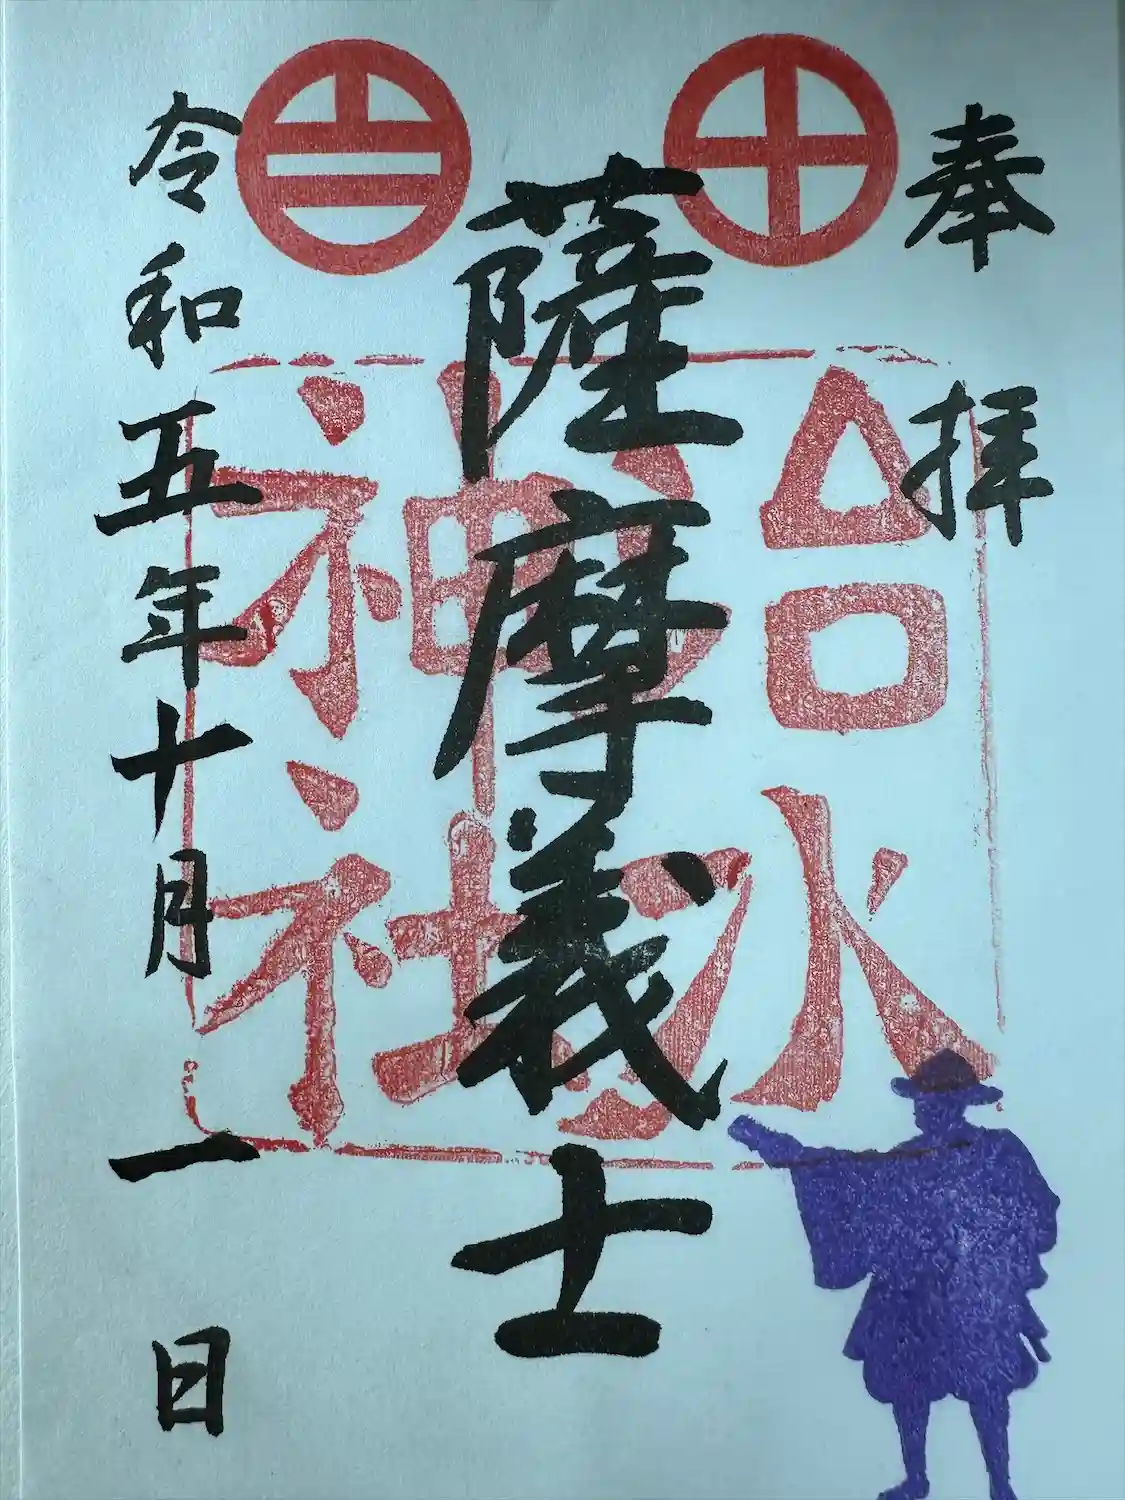 奉拝
薩摩義士
治水
神社
令和五年十月一日